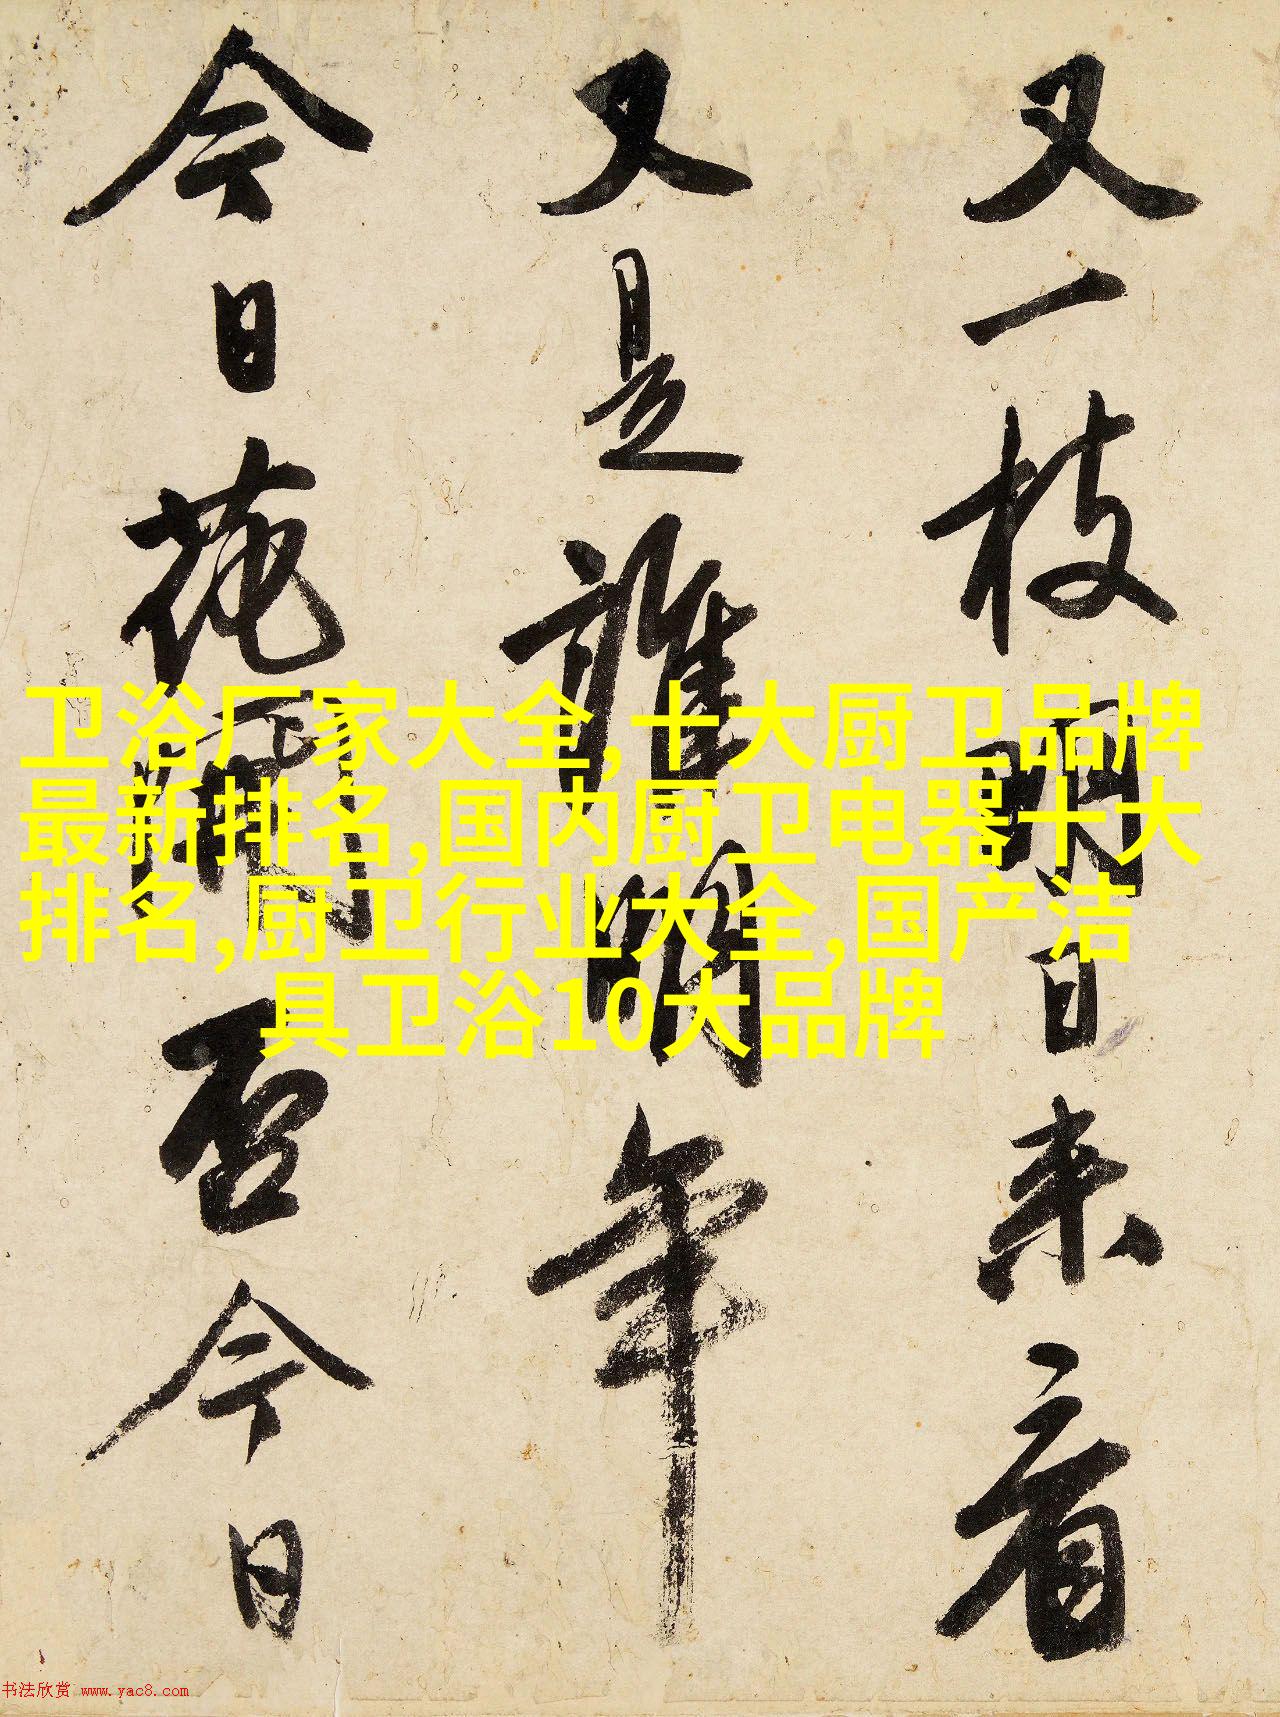 又一枝明日来看
又是谁明年
今日花开否今日
卫浴厂家大全,十大厨卫品牌
最新排名,国内厨卫电器十大
排名,厨卫行业大全,国产洁
具卫浴10大品牌
书法欣赏 www.yac8.com